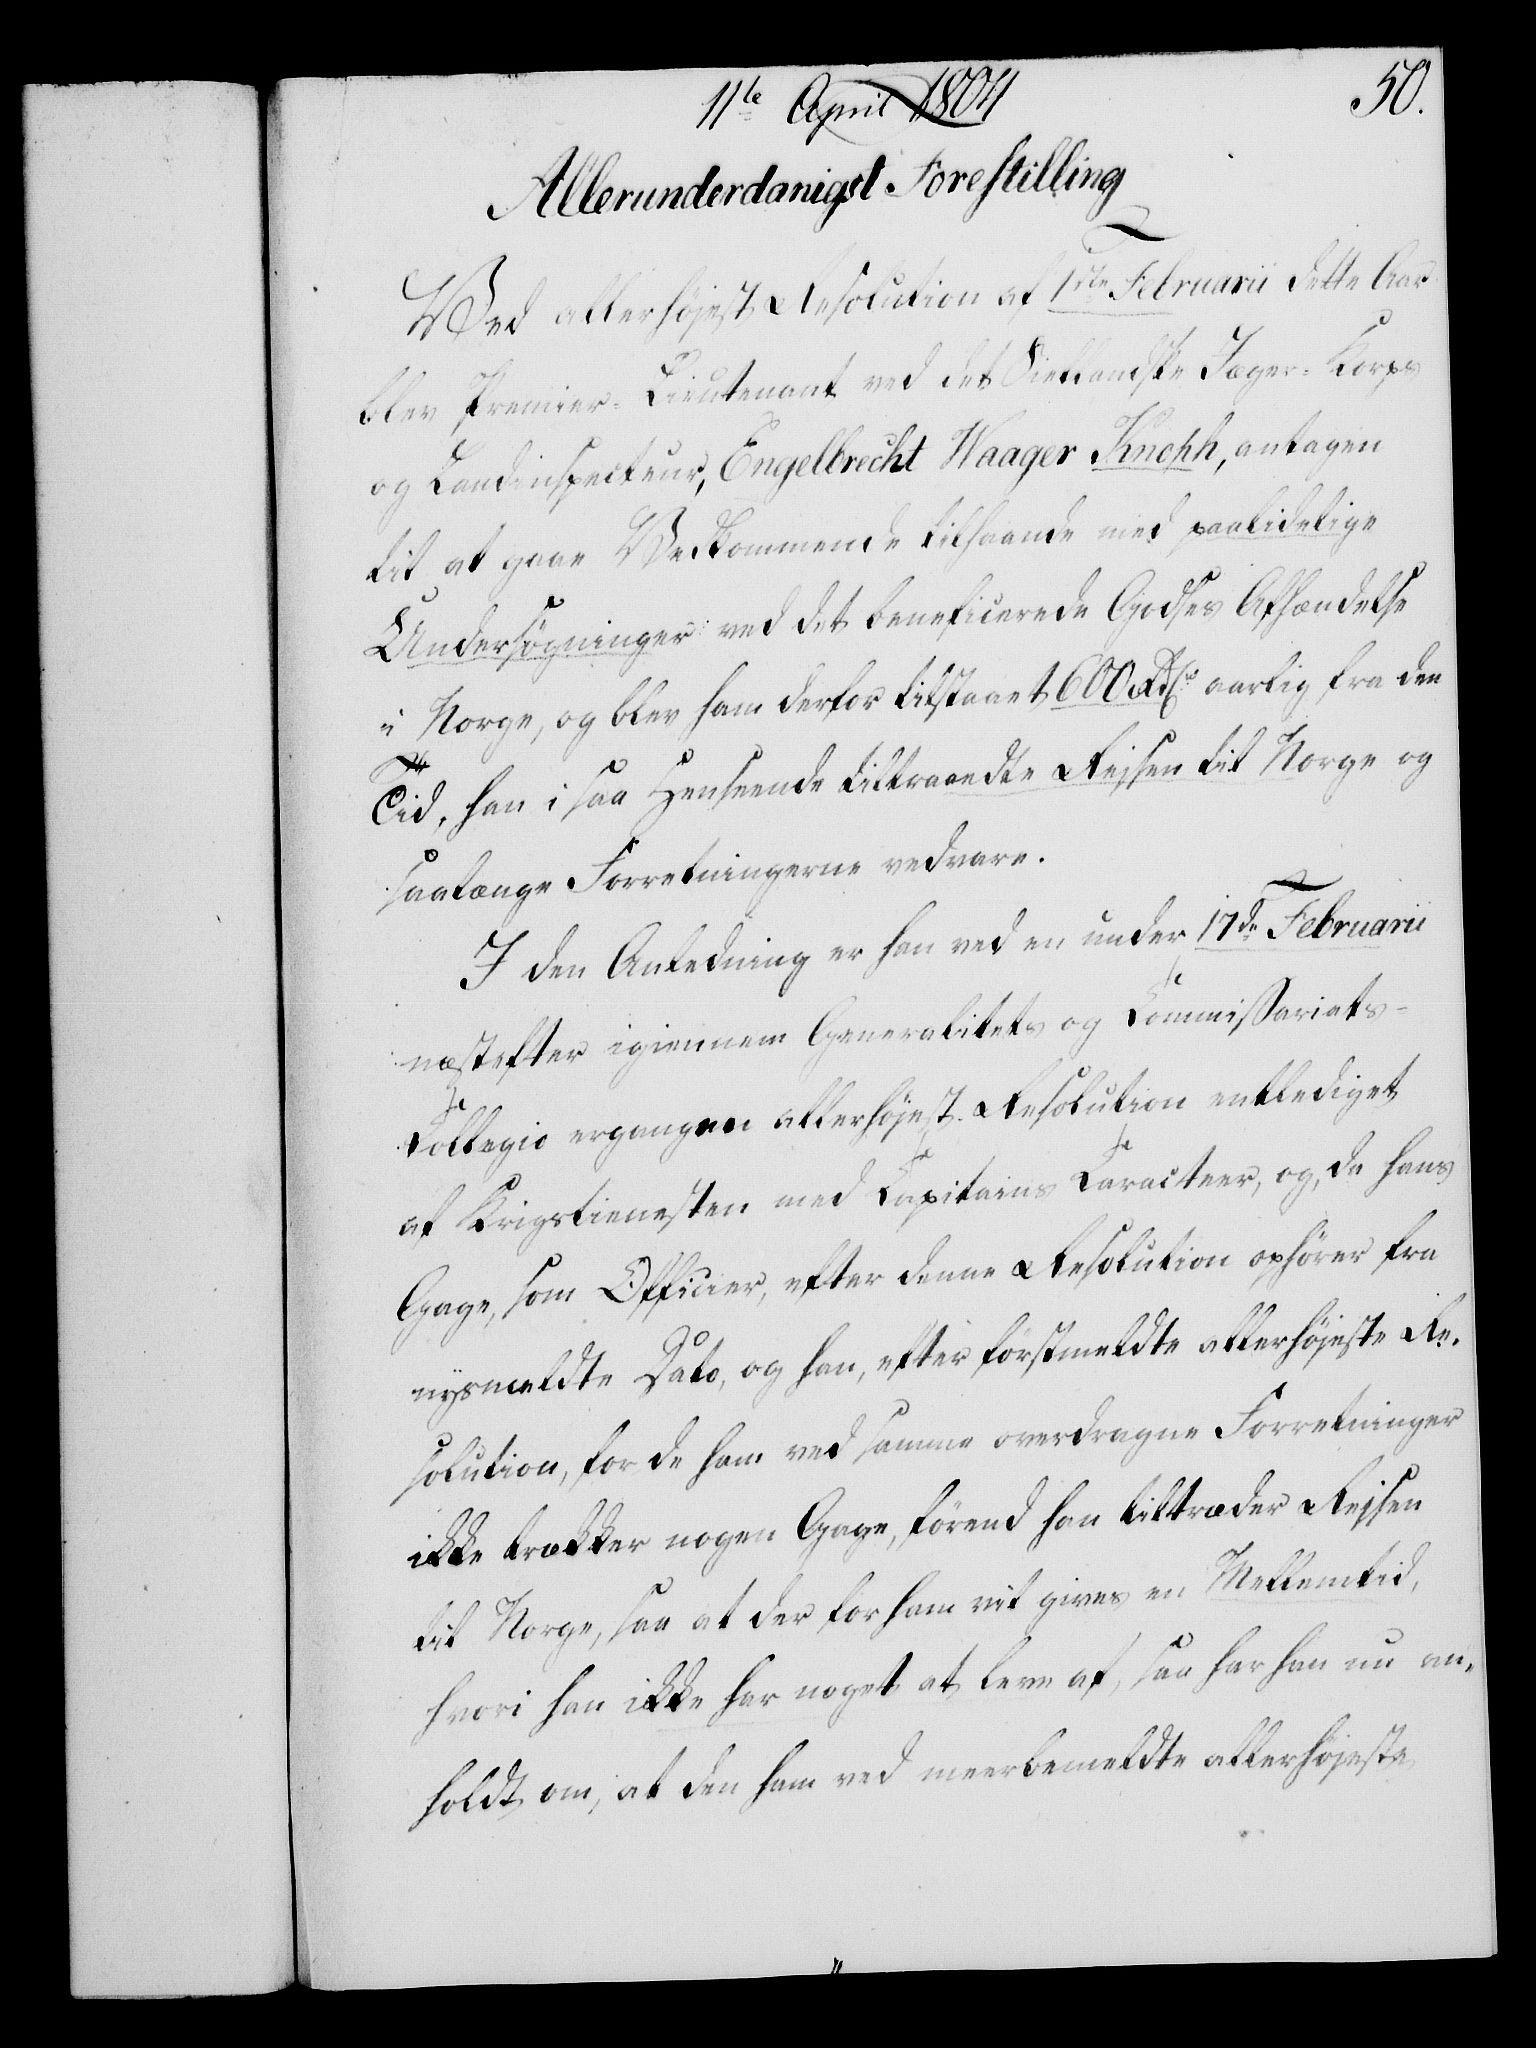 11te April 1804
50.
Allerunderdanigst Forestilling
Ved allerhøjest Resolution af 1ste Februarii dette Aar
blev Premier-Lieutenant ved det Siellandske Jæger-Korps
og Landinspecteur, Engelbrecht Waager Knophh, antagen
til at gaae Vedkommende tilhaande med paalidelige
Undersøgninger ved det beneficerede Godses Afhændelse
i Norge, og blev ham derfor tilstaaet 600 Rdlr aarlig fra den
Tid, han i saa Henseende tiltraadte Rejsen til Norge og
saalænge Forretningerne vedvare.
I den Anledning er han ved en under 17de Februarii
næstefter igiennem Generalitets og Commissariats-
Collegio ergangen allerhøjest Resolution entlediget
af Krigstienesten med Capitains Caracteer, og, da hans
Gage, som Officier, efter denne Resolution ophører fra
nysmeldte Dato, og han, efter førstmeldte allerhøjeste Re-
solution, for de ham ved samme overdragne Forretninger
ikke trækker nogen Gage, førend han tiltræder Rejsen
til Norge, saa at der for ham vil gives en Mellemtid,
hvori han ikke har noget at leve af, saa har han nu an-
holdt om, at den ham ved meerbemeldte allerhøjeste